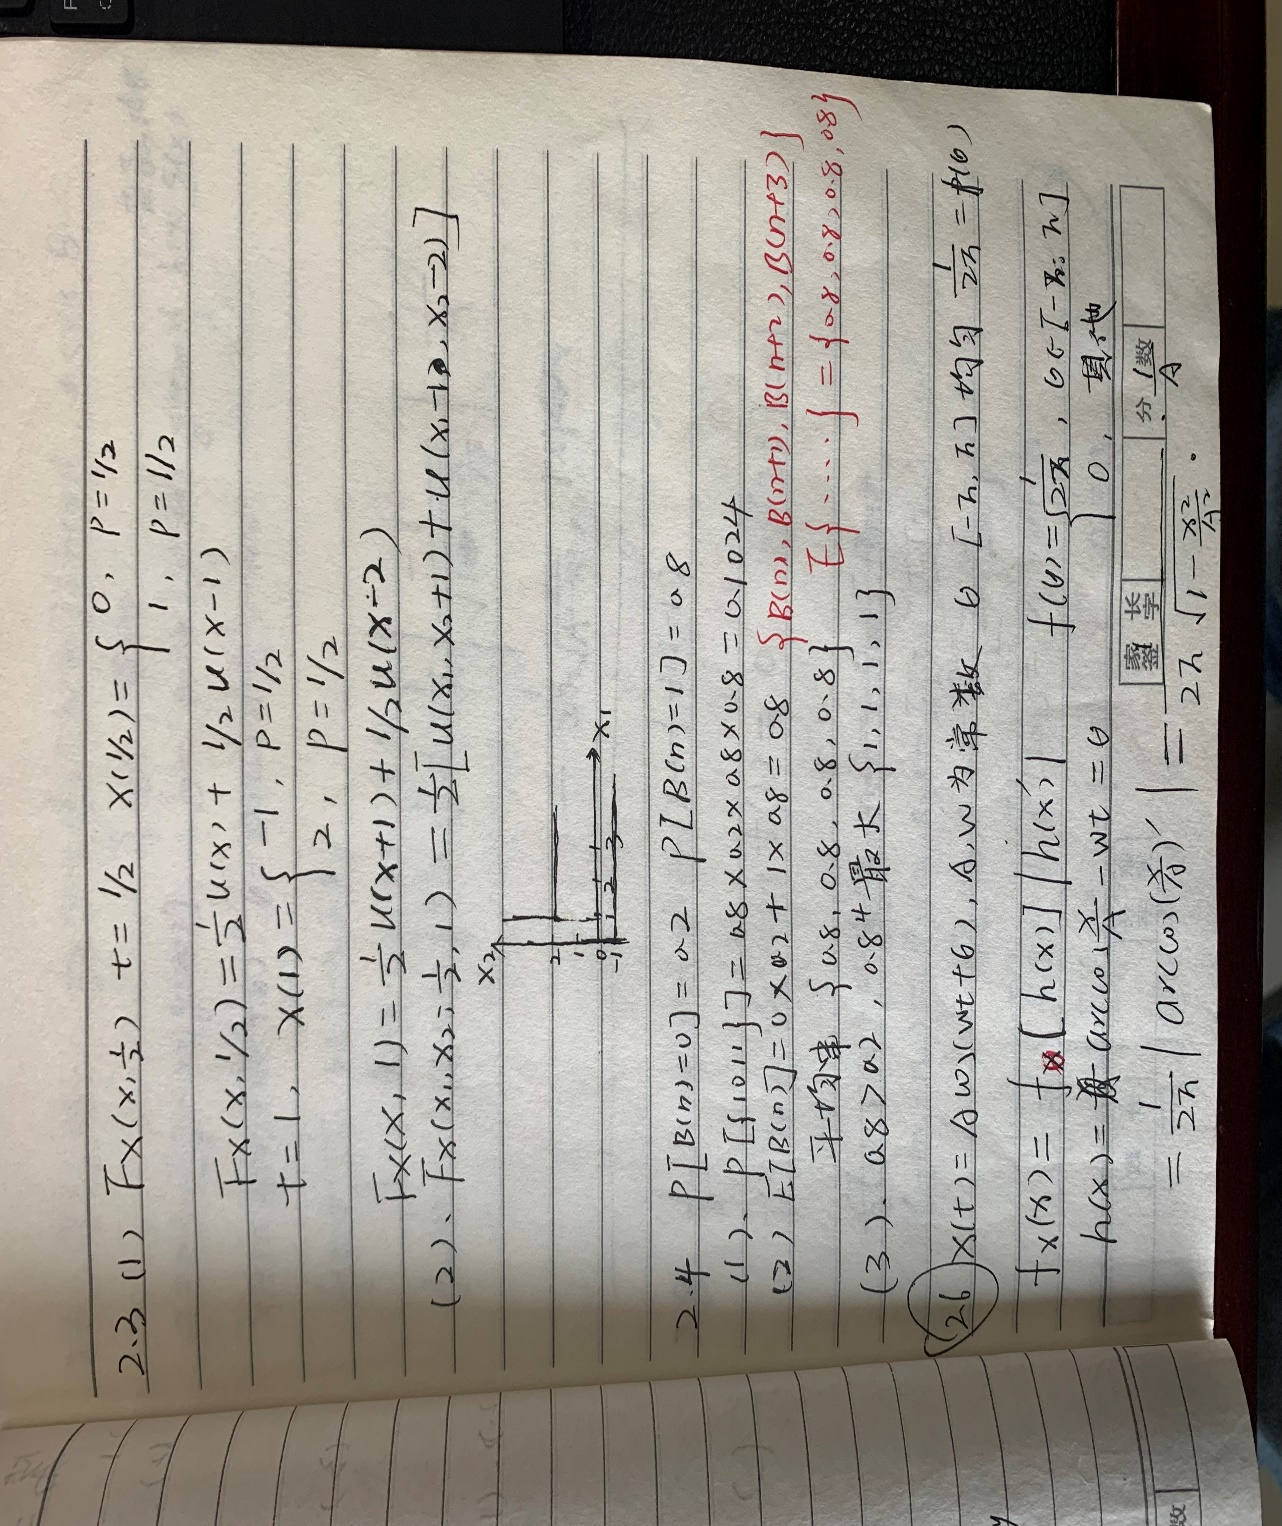 2.3 (1) Fx(x,½) t=½ X(½)={0, P=½
1, P=1/2
Fx(x,½)=½u(x)+½u(x-1)
t=1, X(1)={-1, P=½
2, P=½
Fx(x,1)=½u(x+1)+½u(x-2)
(2)、Fx(x₁,x₂;½,1)=½[u(x₁,x₂+1)+u(x₁-1,x₂-2)]
x₂
2
1
0 1 2 3 x₁
-1
2.4 P[B(n)=0]=0.2 P[B(n)=1]=0.8
(1)、P[{1011}]=0.8×0.2×0.8×0.8=0.1024
(2) E[B(n)]=0×0.2+1×0.8=0.8 {B(n),B(n+1),B(n+2),B(n+3)}
平均串 {0.8,0.8,0.8,0.8} E{....}={0.8,0.8,0.8,0.8}
(3). 0.8>0.2, 0.8⁴最大 {1,1,1,1}
2.6 X(t)=Acos(wt+θ), A,w为常数 θ [-π,π]均匀 1/2π=f(θ)
fx(x)= fx[h(x)]|h'(x)| f(θ)={1/2π, θ∈[-π,π]
h(x)=arccos x/A-wt=θ 0, 其他
家长签字 分数
=1/2π |arccos(x/A)'|=1/A / 2π√1-x²/A².
数